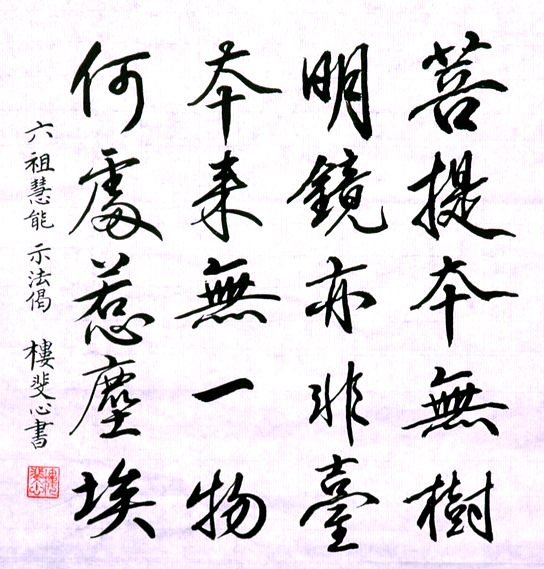 菩提本無樹
明鏡亦非臺
本来無一物
何處惹塵埃
六祖慧能示法偈 樓斐心書